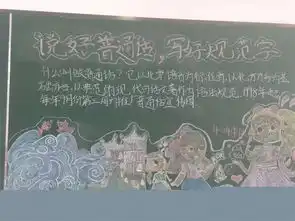 说好普通话,写好规范字
什么叫做普通话?它以北京语音为标准音,以北方方言为
基础方言,以典范的现代白话文著作为语法规范,1998年起
每年9月份第三周为推广普通话宣传周